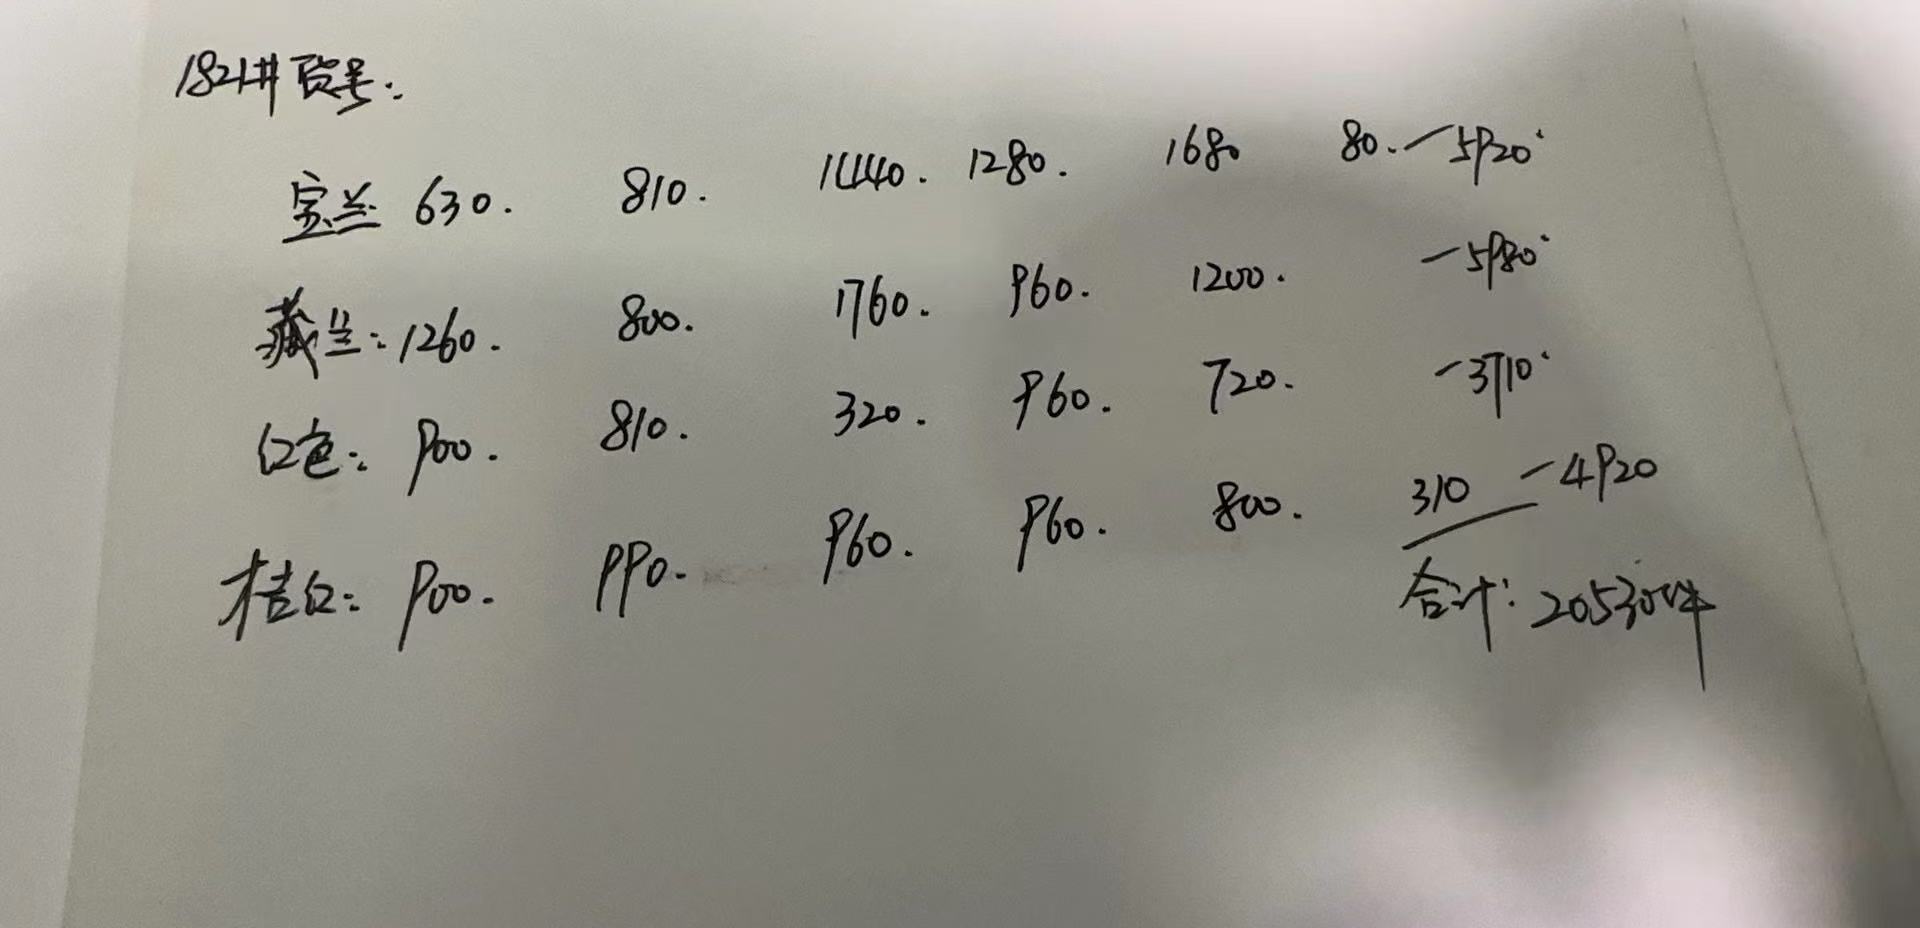 1821# 货号:
宝兰 630. 810. 1440. 1280. 1680 80. — 5920.
藏兰: 1260. 800. 1760. 960. 1200. — 5980.
红色: 900. 810. 320. 960. 720. — 3710.
桔红: 900. 990. 960. 960. 800. 310 — 4920
合计: 20530件